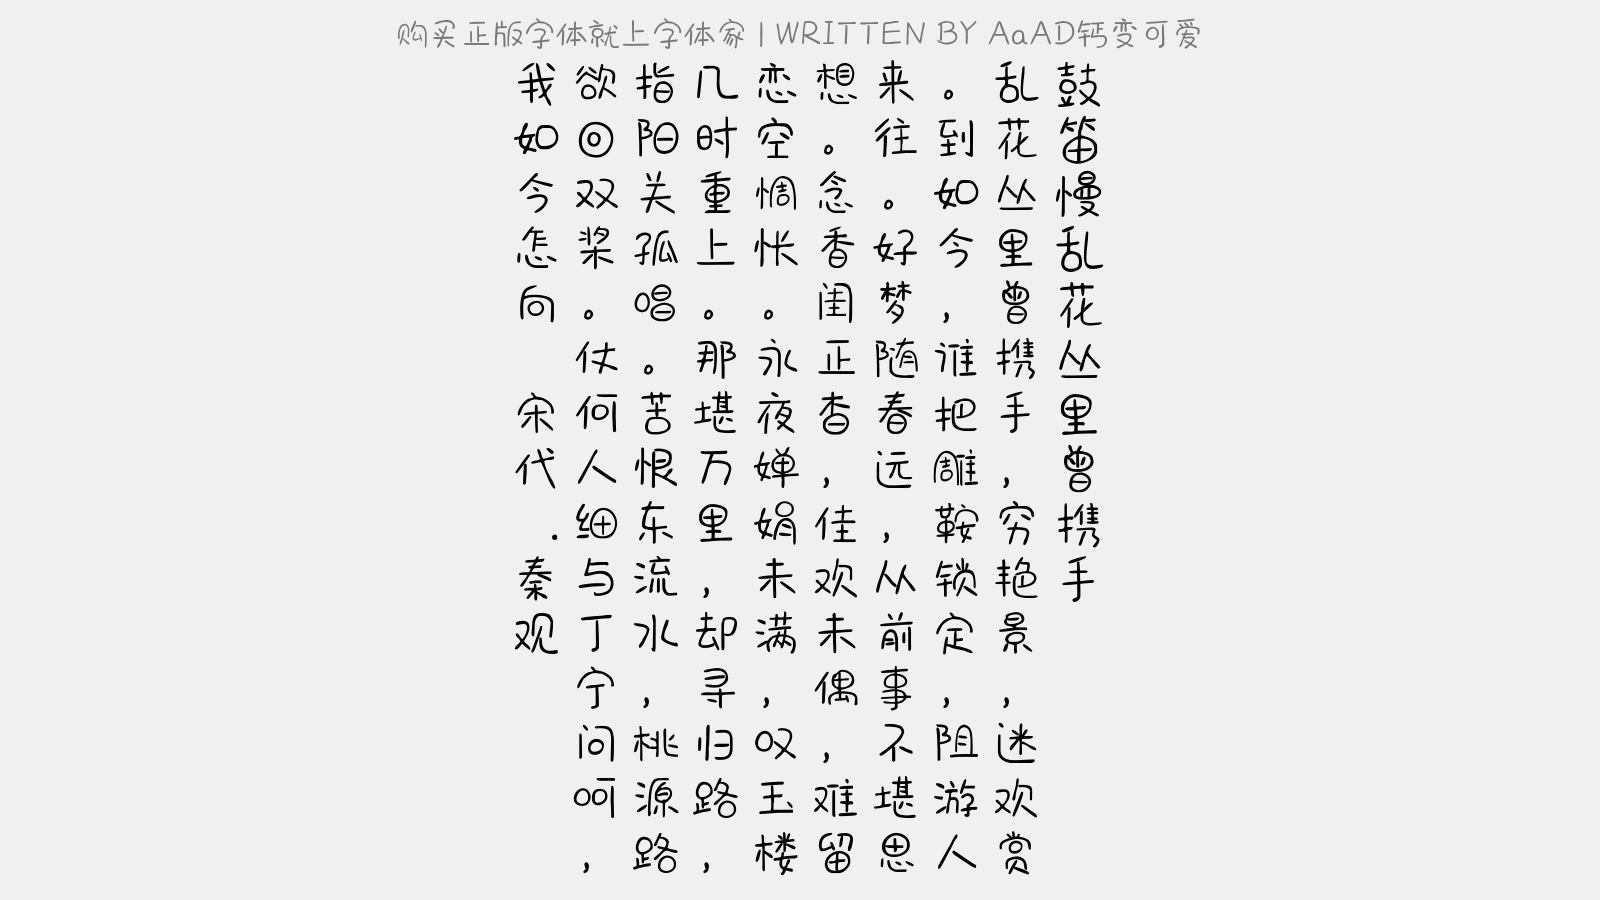 购买正版字体就上字体家 | WRITTEN BY AaAD钙变可爱
鼓笛慢乱花丛里曾携手
乱花丛里曾携手，穷艳景，迷欢赏
。到如今，谁把雕鞍锁定，阻游人
来往。好梦随春远，从前事不堪思
想。念香闺正杳，佳欢未偶，难留
恋空惆怅。永夜婵娟未满，叹玉楼
几时重上。那堪万里，却寻归路，
指阳关孤唱。苦恨东流水，桃源路
欲回双桨。仗何人细与丁宁问呵，
我如今怎向 宋代.秦观